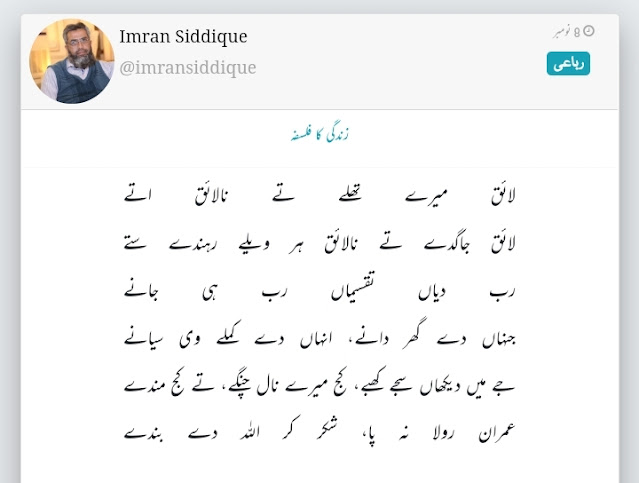 Imran Siddique
@imransiddique
8 نومبر
رباعی
زندگی کا فلسفہ
لائق میرے تھلے تے نالائق اتے
لائق جاگدے تے نالائق ہر ویلے رہندے ستے
رب دیاں تقسیماں رب ہی جانے
جنہاں دے گھر دانے، انہاں دے کملے وی سیانے
جے میں دیکھاں سجے کھبے، کج میرے نال چنگے، تے کج مندے
عمران رولا نہ پا، شکر کر اللہ دے بندے